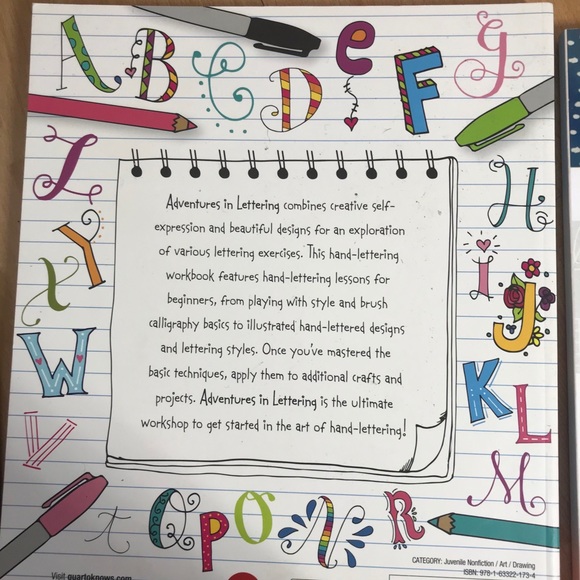 A B C D e F G
H
Z
I
Y
J
X
Adventures in Lettering combines creative self-
expression and beautiful designs for an exploration
of various lettering exercises. This hand-lettering
workbook features hand-lettering lessons for
beginners, from playing with style and brush
calligraphy basics to illustrated hand-lettered designs
and lettering styles. Once you've mastered the
basic techniques, apply them to additional crafts and
projects. Adventures in Lettering is the ultimate
workshop to get started in the art of hand-lettering!
W
K
V
L
M
t Q P O N R
CATEGORY: Juvenile Nonfiction / Art / Drawing
ISBN: 978-1-63322-173-4
Visit quartoknows.com